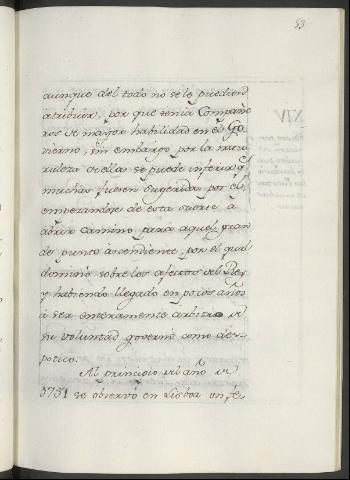 53
aunque del todo no se le puedan
atribuir, por que tenia Compañe-
ros de mayor habilidad en el Go-
vierno, sin embargo por la
de ellas se puede inferir q.
muchas fuesen sugeridas por el,
empezandose de esta suerte à
abrir camino para aquel gran-
de punto ascendiente, por el qual
dominò sobre los afectos del Rey
y habiendo llegado en pocos años
à ser enteramente arbitro de
su voluntad governò como des-
potico.
Al principio del año de
1751 se observò en Lisboa un fe-
XIV